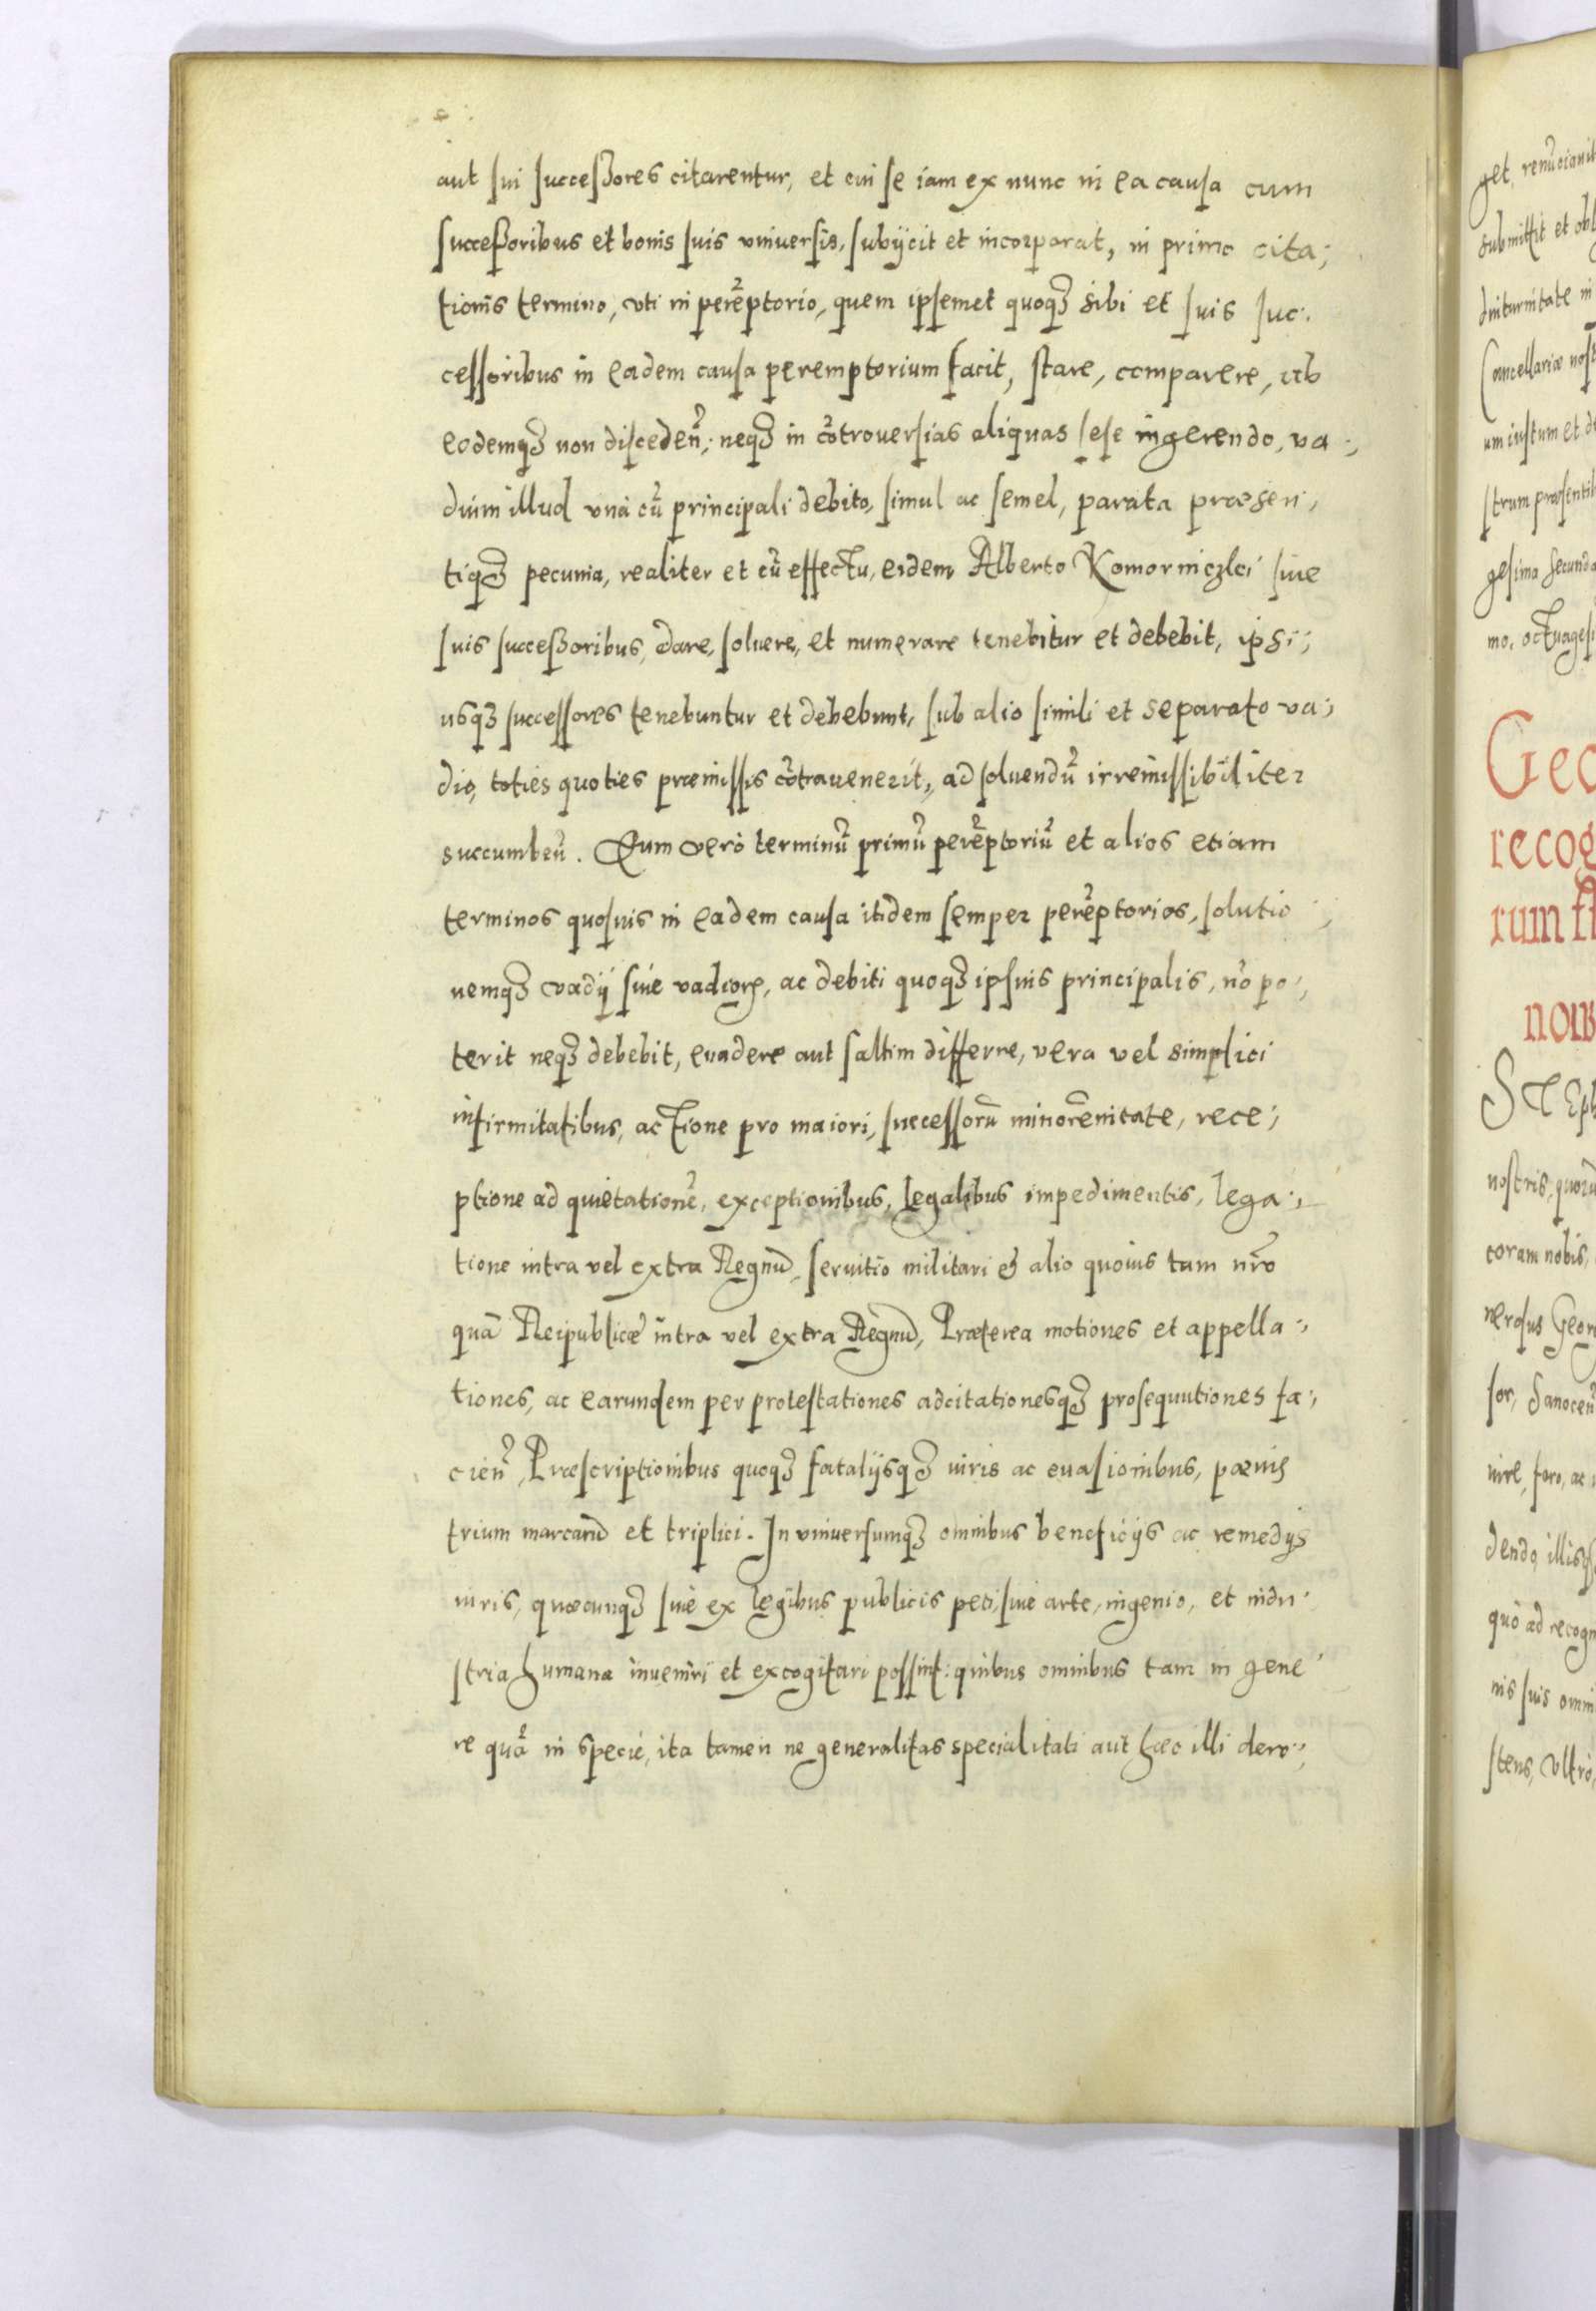 aut sui successores citarentur, et cui se iam ex nunc in ea causa cum
successoribus et bonis suis vniuersis, subijcit et incorporat, in primo cita;
tionis termino, vti in perẽptorio, quem ipsemet quoqꝫ sibi et suis suc:
cessoribus in eadem causa peremptorium facit, stare, comparere, ab
eodemqꝫ non discedeñ; neqꝫ in cõtrouersias aliquas sese ingerendo, va;
dium illud vnà cũ principali debito, simul ac semel, parata præsen;
tiqꝫ pecunia, realiter et cũ effectu, eidem Alberto Komorniczki siue
suis successoribus, dare, soluere, et numerare tenebitur et debebit, ipsi;
usqꝫ successores tenebuntur et debebunt, sub alio simili et separato va;
dio, toties quoties præmissis cõtrauenerit, ad soluendũ irremissibiliter
succumbeñ. Eum verò terminũ primũ perẽptoriũ et alios etiam
terminos quosuis in eadem causa itidem semper perẽptorios, solutio
nemqꝫ vadij siue vadiorꝝ, ac debiti quoqꝫ ipsius principalis, nõ po;
terit neqꝫ debebit, euadere aut saltim differre, vera vel simplici
infirmitatibus, actione pro maiori, successorũ minorẽnitate, rece;
ptione ad quietationẽ, exceptionibus, legalibus impedimentis, lega;
tione intra vel extra Regnũ, seruitio militari & alio quouis tam nr̃o
quã Reipublicæ intra vel extra Regnũ, Præterea motiones et appella;
tiones, ac earundem per protestationes adcitationesqꝫ prosequutiones fa;
cieñ, Præscriptionibus quoqꝫ fatalijsqꝫ iuris ac euasionibus, pœnis
trium marcarũ et triplici. In vniuersumqꝫ omnibus beneficijs ac remedijs
iuris, quæcunqꝫ siue ex legibus publicis peti, siue arte, ingenio, et indu
stria humana inueniri et excogitari possint: quibus omnibus tam in gene
re quã in specie, ita tamen ne generalitas specialitati aut hæc illi dero;
get, renũciauit
submittit et obl
diuturnitate in
Cancellariæ nost
um iustum et de
strum præsentib
gesima secunda
mo, octuagesi
Geo
recog
rum
nob
Steph
nostris, quorũ
coram nobis,
nerosus Geor
sor, Sanoceñ
iure, foro, ac
dendo, illisqꝫ
quò ad recogn
nis suis omni
stens, Vltrò,